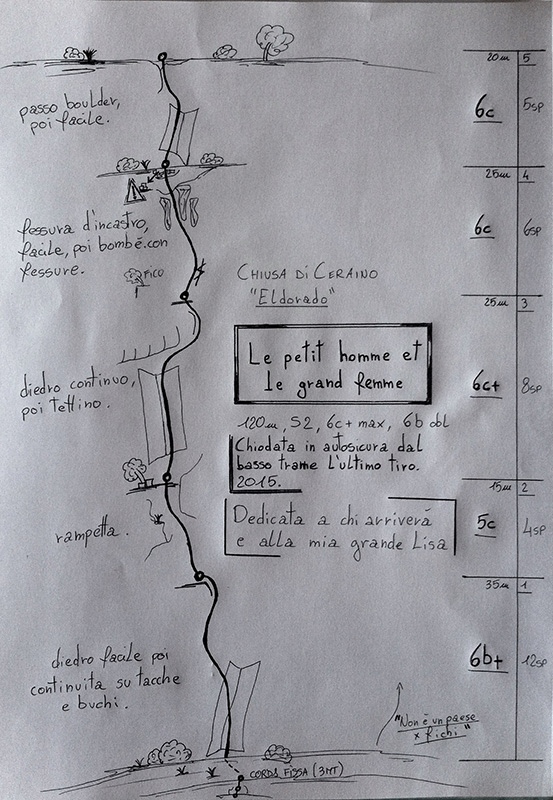 20m 5
passo boulder,
poi facile.
6c
5sp
25m 4
fessura d'incastro,
facile, poi bombé con
fessure.
FICO
6c
6sp
CHIUSA DI CERAINO
"Eldorado"
25m 3
Le petit homme et
le grand femme
diedro continuo,
poi tettino.
6c+
8sp
120m, S2, 6c+ max, 6b obl
Chiodata in autosicura dal
basso trame l'ultimo tiro.
2015.
15m 2
Dedicata a chi arriverá
e alla mia grande Lisa
rampetta.
5c
4sp
35m 1
diedro facile poi
continuita su tacche
e buchi.
6b+
12sp
"Non é un paese
x fichi"
CORDA FISSA (3MT)